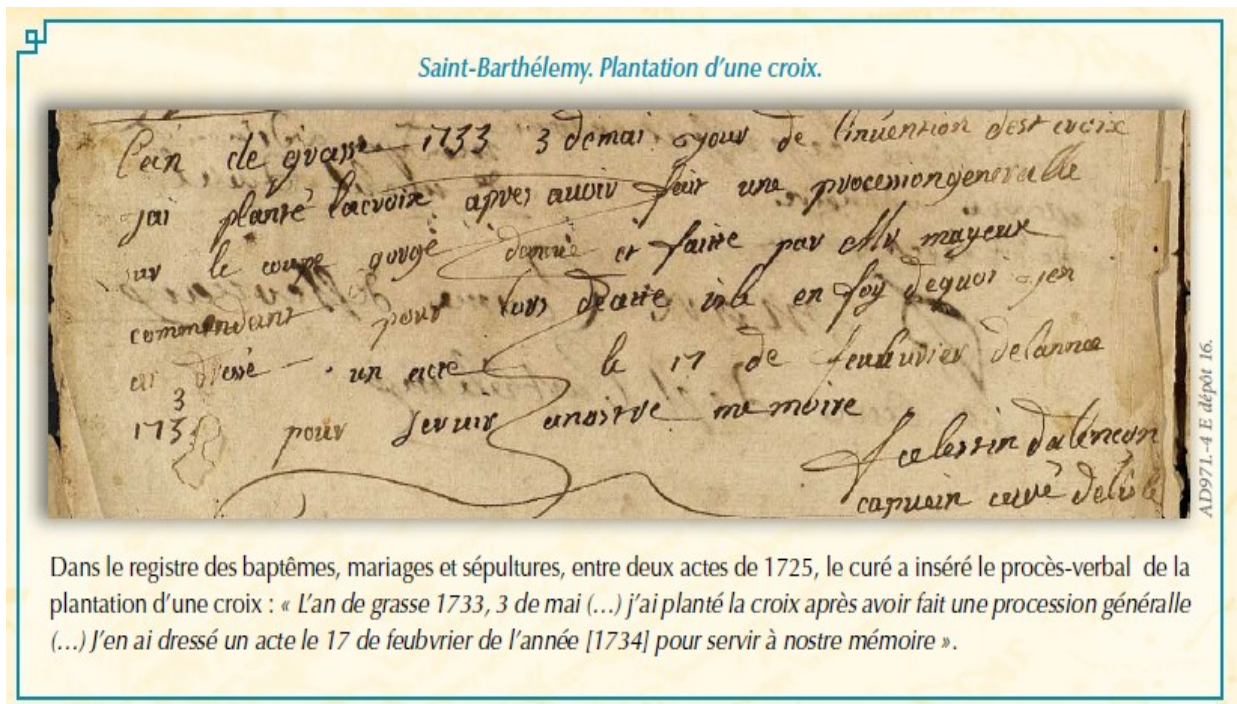 Saint-Barthélemy. Plantation d'une croix.
l'an de grasse 1733 3 de mai jour de l'invention de st croix
jai planté lacroix apres avoir fait une processiongeneralle
sur le gorge donnée et faitte par Mr mayeux
commendant pour lors decette isle en foy dequoi jen
ai dressé un acte le 17 de feubuvrier delannee
3
173 pour servir anostre memoire
f celestin dalencon
capucin curé delisle
AD971.-4 E dépôt 16.
Dans le registre des baptêmes, mariages et sépultures, entre deux actes de 1725, le curé a inséré le procès-verbal de la
plantation d'une croix : « L'an de grasse 1733, 3 de mai (...) j'ai planté la croix après avoir fait une procession généralle
(...) J'en ai dressé un acte le 17 de feubvrier de l'année [1734] pour servir à nostre mémoire ».